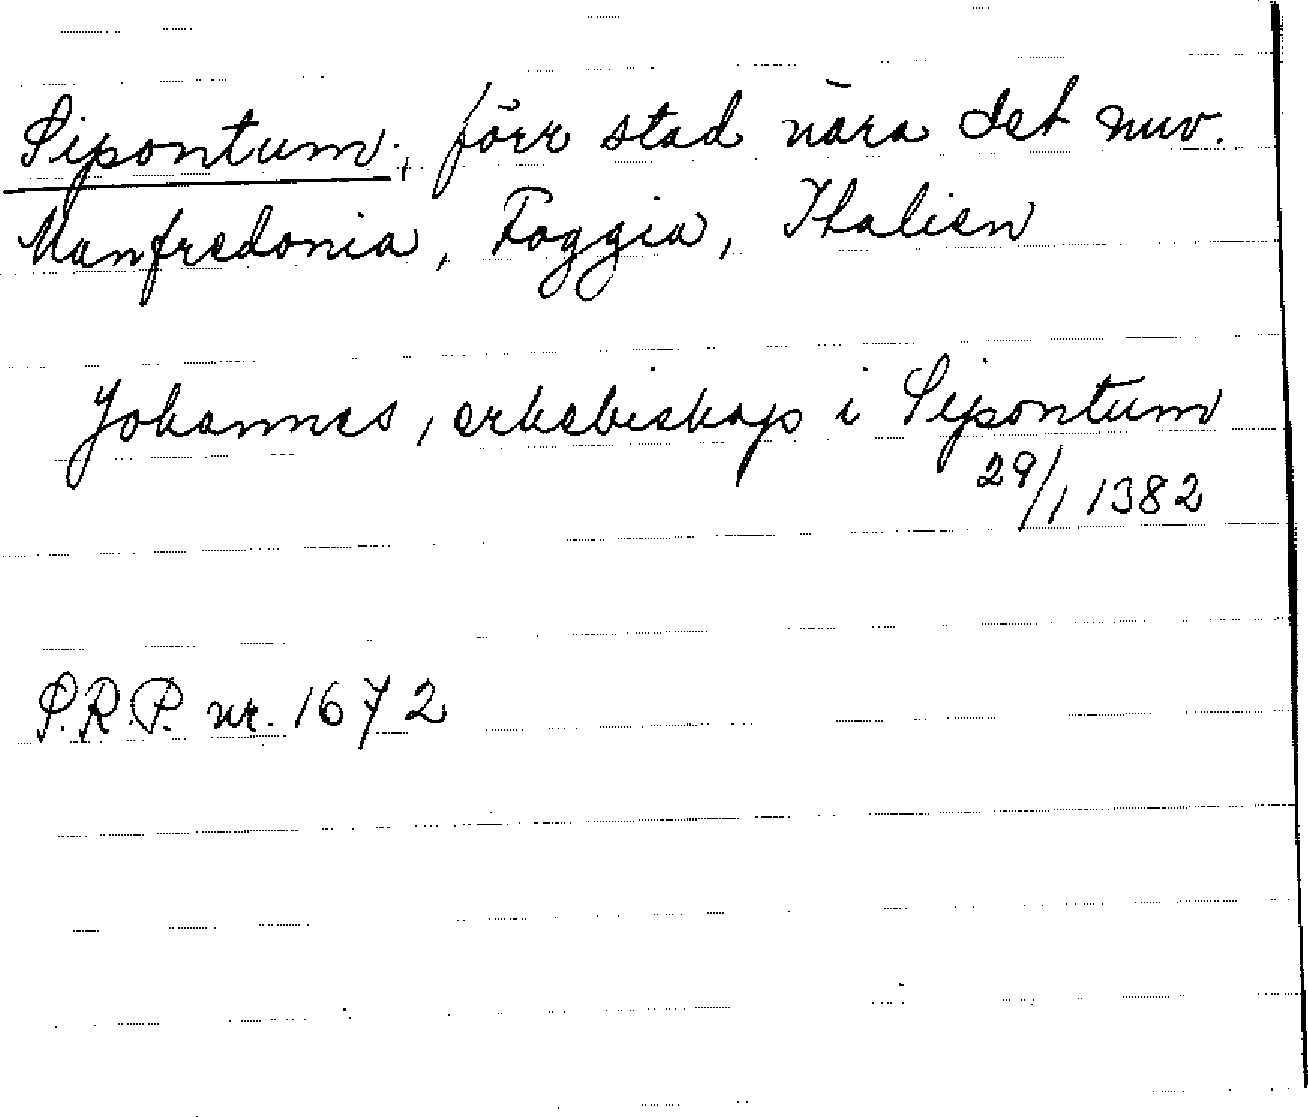 Sipontum, förr stad nära det nuv.
Manfredonia, Foggia, Italien
Johannes, erkebiskop i Sipontum
29/1 1382
S.R.P. nr. 1672